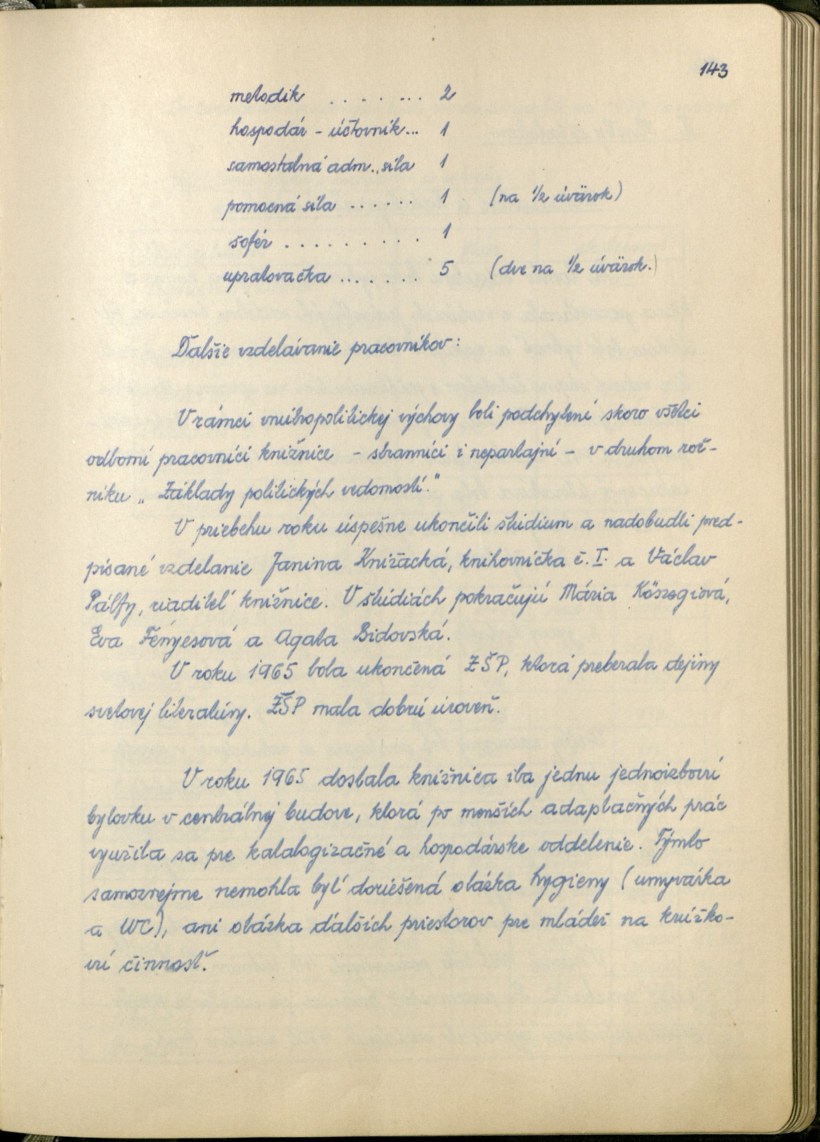 143
metodik . . . . . . . 2
hospodár - účtovník... 1
samostatná adm. sila 1
pomocná sila . . . . . . 1 (na 1/2 úväzok)
šofér . . . . . . . . . 1
upratovačka . . . . . . . 5 (dve na 1/2 úväzok.)
Ďalšie vzdelávanie pracovníkov:
V rámci vnútropolitickej výchovy boli podchytení skoro všetci
odborní pracovníci knižnice - straníci i nepartajní - v druhom roč-
níku „Základy politických vedomostí."
V priebehu roku úspešne ukončili štúdium a nadobudli pred-
písané vzdelanie Janina Knižacká, knihovníčka č. I. a Václav
Pálffy, riaditeľ knižnice. V štúdiách pokračujú Mária Köszegiová,
Eva Fényesová a Agata Bidovská.
V roku 1965 bola ukončená ZŠP, ktorá preberala dejiny
svetovej literatúry. ZŠP mala dobrú úroveň.
V roku 1965 dostala knižnica iba jednu jednoizbovú
bytovku v centrálnej budove, ktorá po menších adaptačných prác
využila sa pre katalogizačné a hospodárske oddelenie. Týmto
samozrejme nemohla byť doriešená otázka hygieny (umyvárka
a WC), ani otázka ďalších priestorov pre mládež na krúžko-
vú činnosť.